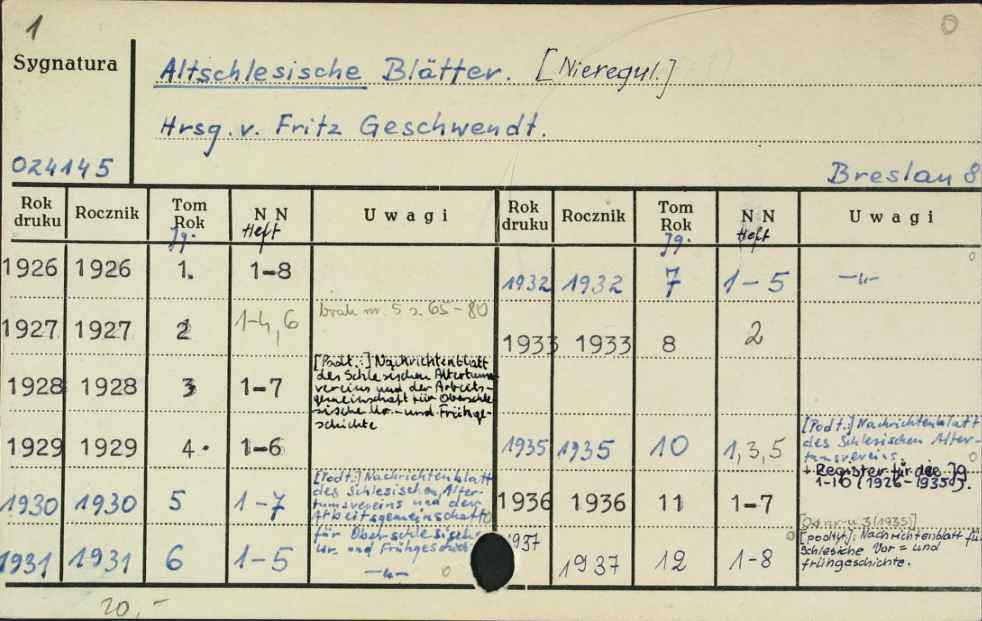 1
Sygnatura
Altschlesische Blätter. [Nieregul.]
Hrsg. v. Fritz Geschwendt.
024145
Breslau 8
Rok druku Rocznik Tom Rok Jg. N N Heft Uwagi
1926 1926 1. 1-8
1927 1927 2 1-4, 6 brak nr. 5 s. 65-80
1928 1928 3 1-7 [Podt.:] Nachrichtenblatt
des Schlesischen Altertums-
vereins und der Arbeits-
gemeinschaft für Oberschle-
sische Ur- und Frühge-
schichte
1929 1929 4. 1-6
1930 1930 5 1-7 [Podt.:] Nachrichtenblatt
des Schlesischen Alter-
tumsvereins und der
Arbeitsgemeinschaft
für Oberschlesische
Ur. und Frühgeschich
1931 1931 6 1-5 —"—
Rok druku Rocznik Tom Rok Jg. N N Heft Uwagi
1932 1932 7 1-5 —"—
1933 1933 8 2
1935 1935 10 1,3,5 [Podt.:] Nachrichtenblatt
des Schlesischen Alter-
tumsvereins.
+ Register für die Jg
1-10 (1926-1935).
1936 1936 11 1-7
1937 1937 12 1-8 [Od nr-u 3 (1935)]
[podtyt]: Nachrichtenblatt fü
Schlesiche Vor = und
frühgeschichte.
20,-